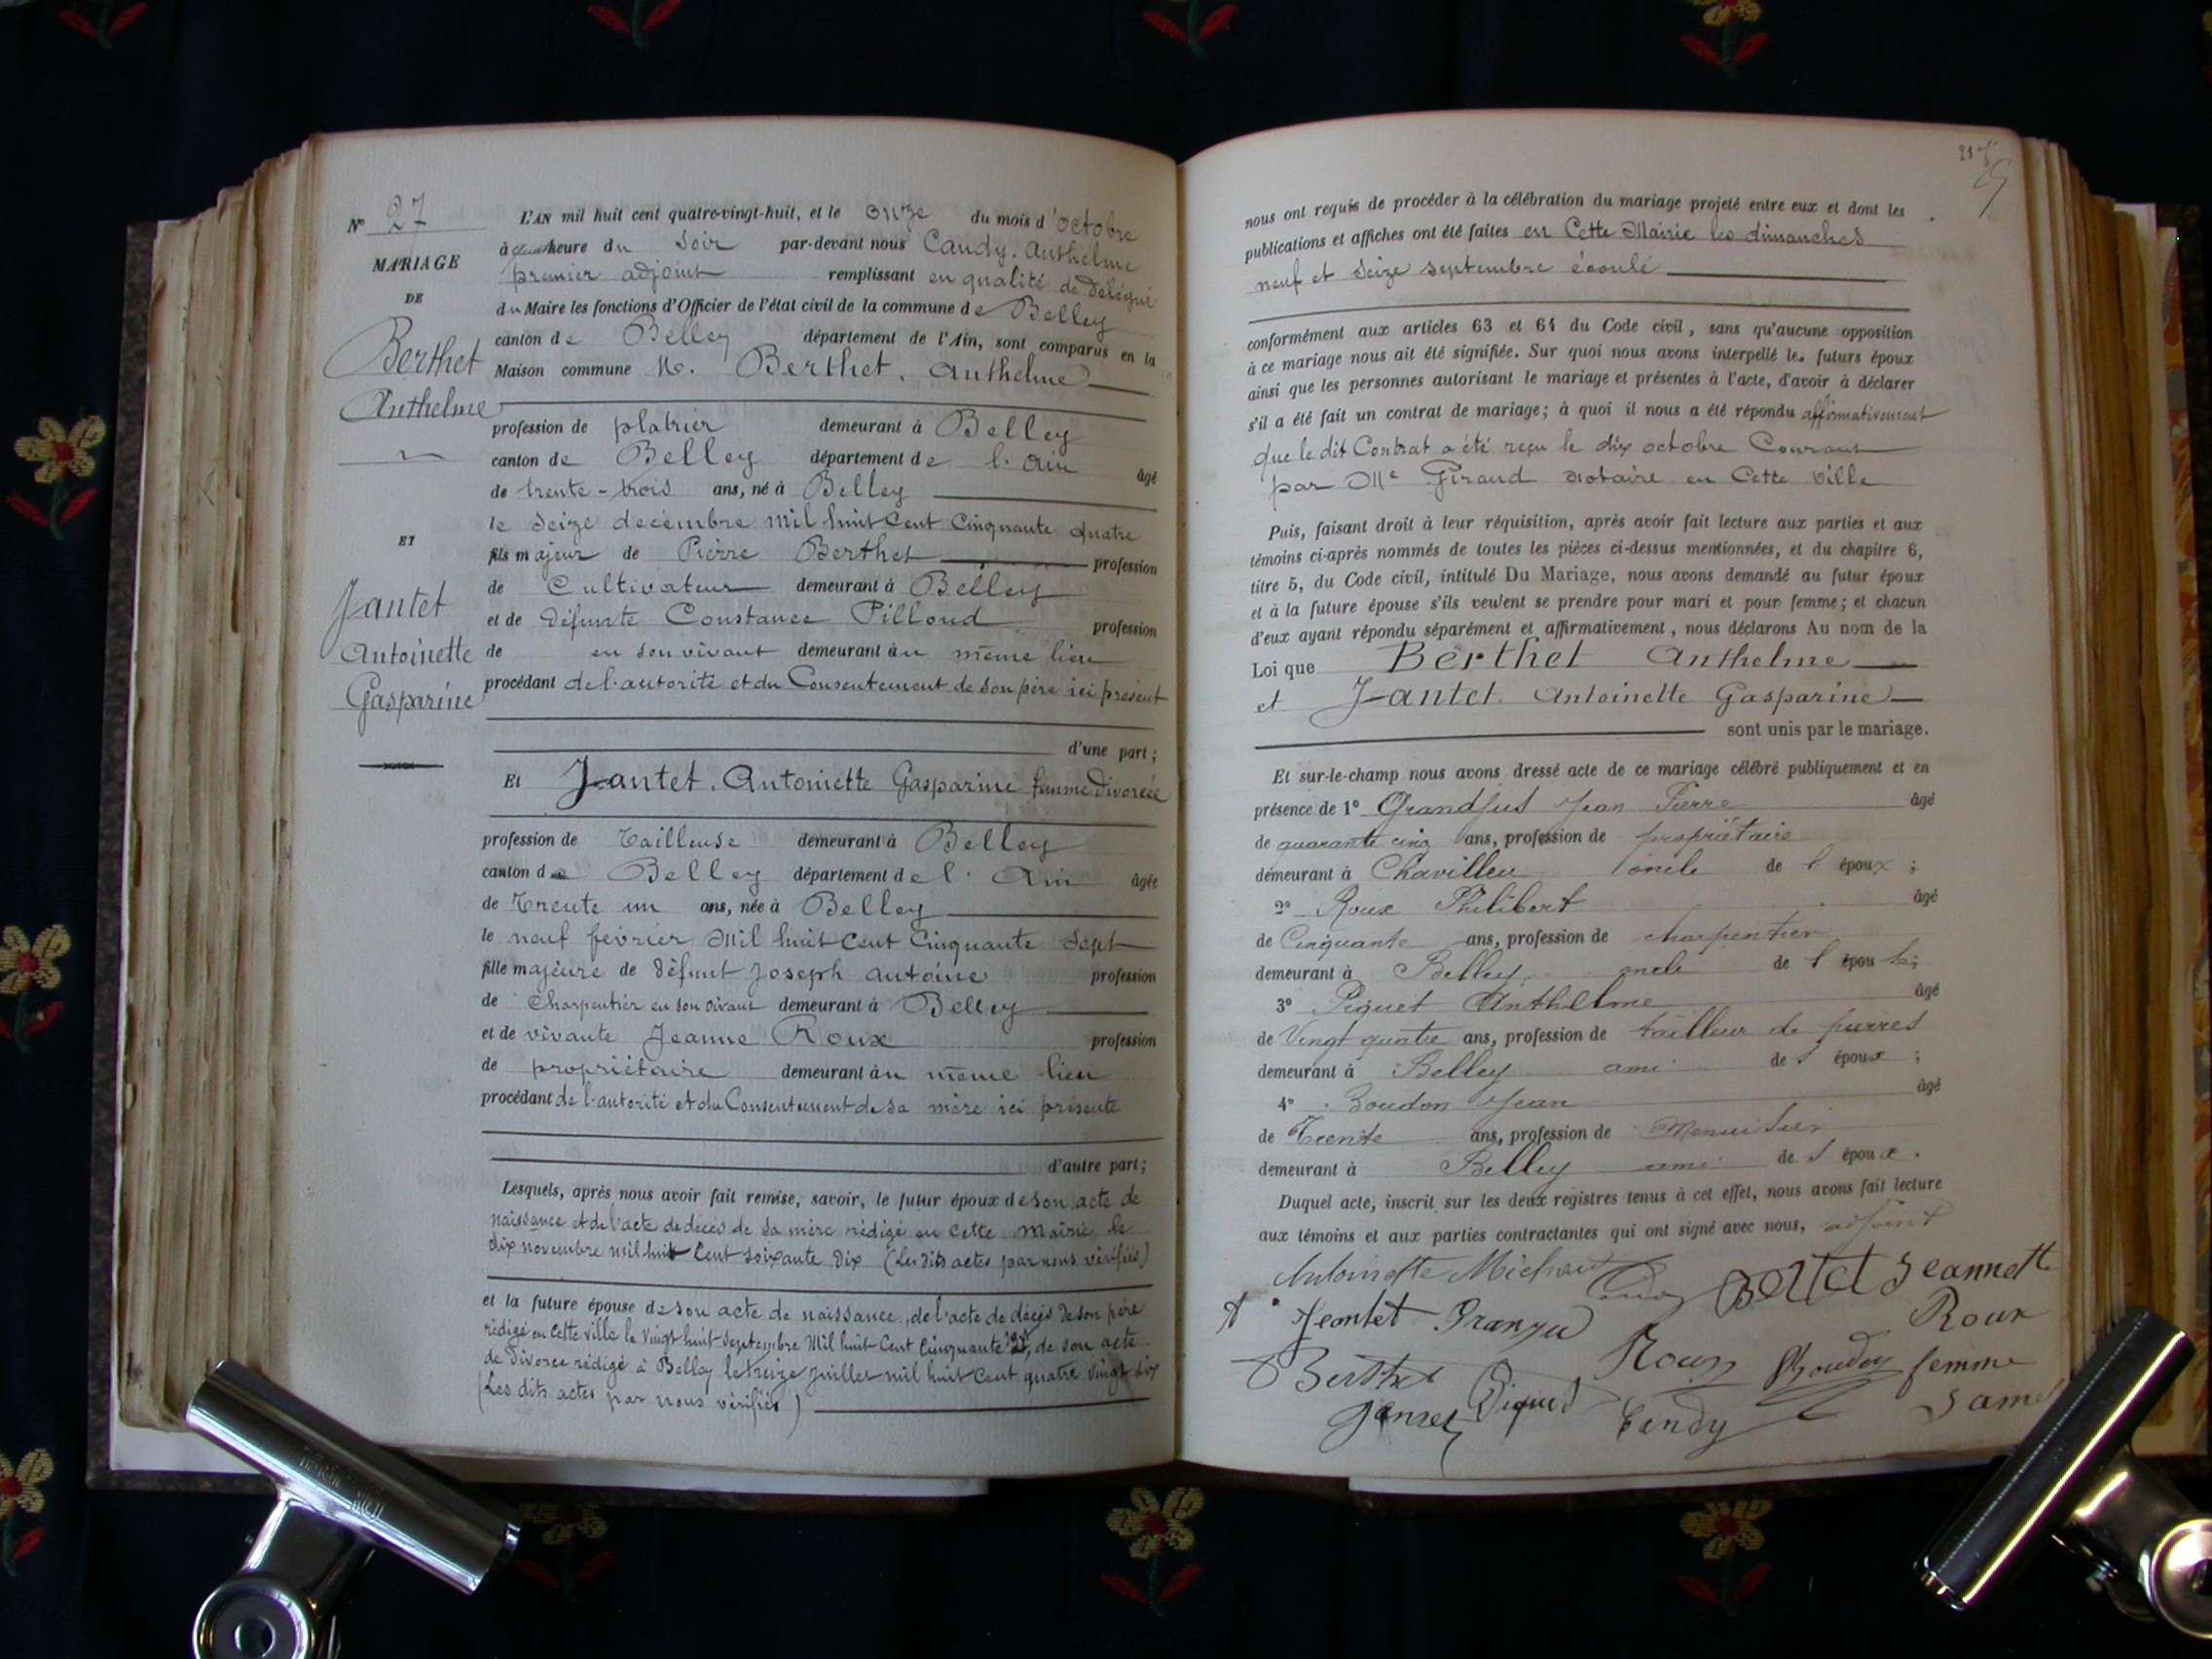 Nº 27
MARIAGE
DE
Berthet
Anthelme
ET
Jantet
Antoinette
Gasparine
L'AN mil huit cent quatre-vingt-huit, et le onze du mois d'octobre
à heure du Soir par-devant nous Candy. Anthelme
premier adjoint remplissant en qualité de délégué
du Maire les fonctions d'Officier de l'état civil de la commune de Belley
canton de Belley département de l'Ain, sont comparus en la
Maison commune M. Berthet. Anthelme
profession de platrier demeurant à Belley
canton de Belley département de l'Ain âgé
de trente-trois ans, né à Belley
le Seize décembre Mil huit Cent Cinquante quatre
fils majeur de Pierre Berthet profession
de Cultivateur demeurant à Belley
et de défunte Constance Pilloud profession
de en son vivant demeurant au même lieu
procédant de l'autorité et du Consentement de son père ici présent
d'une part;
Et Jantet. Antoinette Gasparine femme divorcée
profession de Tailleuse demeurant à Belley
canton de Belley département de l'Ain âgée
de Trente un ans, née à Belley
le neuf février Mil huit Cent Cinquante Sept
fille majeure de défunt Joseph Antoine profession
de Charpentier en son vivant demeurant à Belley
et de vivante Jeanne Roux profession
de propriétaire demeurant au même lieu
procédant de l'autorité et du Consentement de sa mère ici présente
d'autre part;
Lesquels, après nous avoir fait remise, savoir, le futur époux de son acte de
naissance et de l'acte de décès de sa mère rédigé en cette Mairie le
dix novembre mil huit Cent soixante dix (Les dits actes par nous vérifiés)
et la future épouse de son acte de naissance, de l'acte de décès de son père
rédigé en cette ville le Vingt huit Septembre Mil huit Cent Cinquante de son acte
de divorce rédigé à Belley le treize Juillet mil huit Cent quatre vingt six
(Les dits actes par nous vérifiés)
nous ont requis de procéder à la célébration du mariage projeté entre eux et dont les
publications et affiches ont été faites en Cette Mairie les dimanches
neuf et Seize septembre écoulé
conformément aux articles 63 et 64 du Code civil, sans qu'aucune opposition
à ce mariage nous ait été signifiée. Sur quoi nous avons interpellé les futurs époux
ainsi que les personnes autorisant le mariage et présentes à l'acte, d'avoir à déclarer
s'il a été fait un contrat de mariage; à quoi il nous a été répondu affirmativement
que le dit Contrat a été reçu le dix octobre Courant
par Me Giraud notaire en Cette Ville
Puis, faisant droit à leur réquisition, après avoir fait lecture aux parties et aux
témoins ci-après nommés de toutes les pièces ci-dessus mentionnées, et du chapitre 6,
titre 5, du Code civil, intitulé Du Mariage, nous avons demandé au futur époux
et à la future épouse s'ils veulent se prendre pour mari et pour femme; et chacun
d'eux ayant répondu séparément et affirmativement, nous déclarons Au nom de la
Loi que Berthet Anthelme
et Jantet. Antoinette Gasparine
sont unis par le mariage.
Et sur-le-champ nous avons dressé acte de ce mariage célébré publiquement et en
présence de 1º Grandjus Jean Pierre âgé
de quarante cinq ans, profession de propriétaire
demeurant à Chavilleu oncle de l'époux;
2º Roux Philibert âgé
de Cinquante ans, profession de charpentier
demeurant à Belley oncle de l'épouse;
3º Piquet Anthelme âgé
de Vingt quatre ans, profession de tailleur de pierres
demeurant à Belley ami de l'époux;
4º Boudon Jean âgé
de Trente ans, profession de Menuisier
demeurant à Belley ami de l'époux.
Duquel acte, inscrit sur les deux registres tenus à cet effet, nous avons fait lecture
aux témoins et aux parties contractantes qui ont signé avec nous, adjoint
Antoinette Michaud Bertet Jeannette
Jentet Roux
Berthet Roux Boudon femme
Piquet Candy